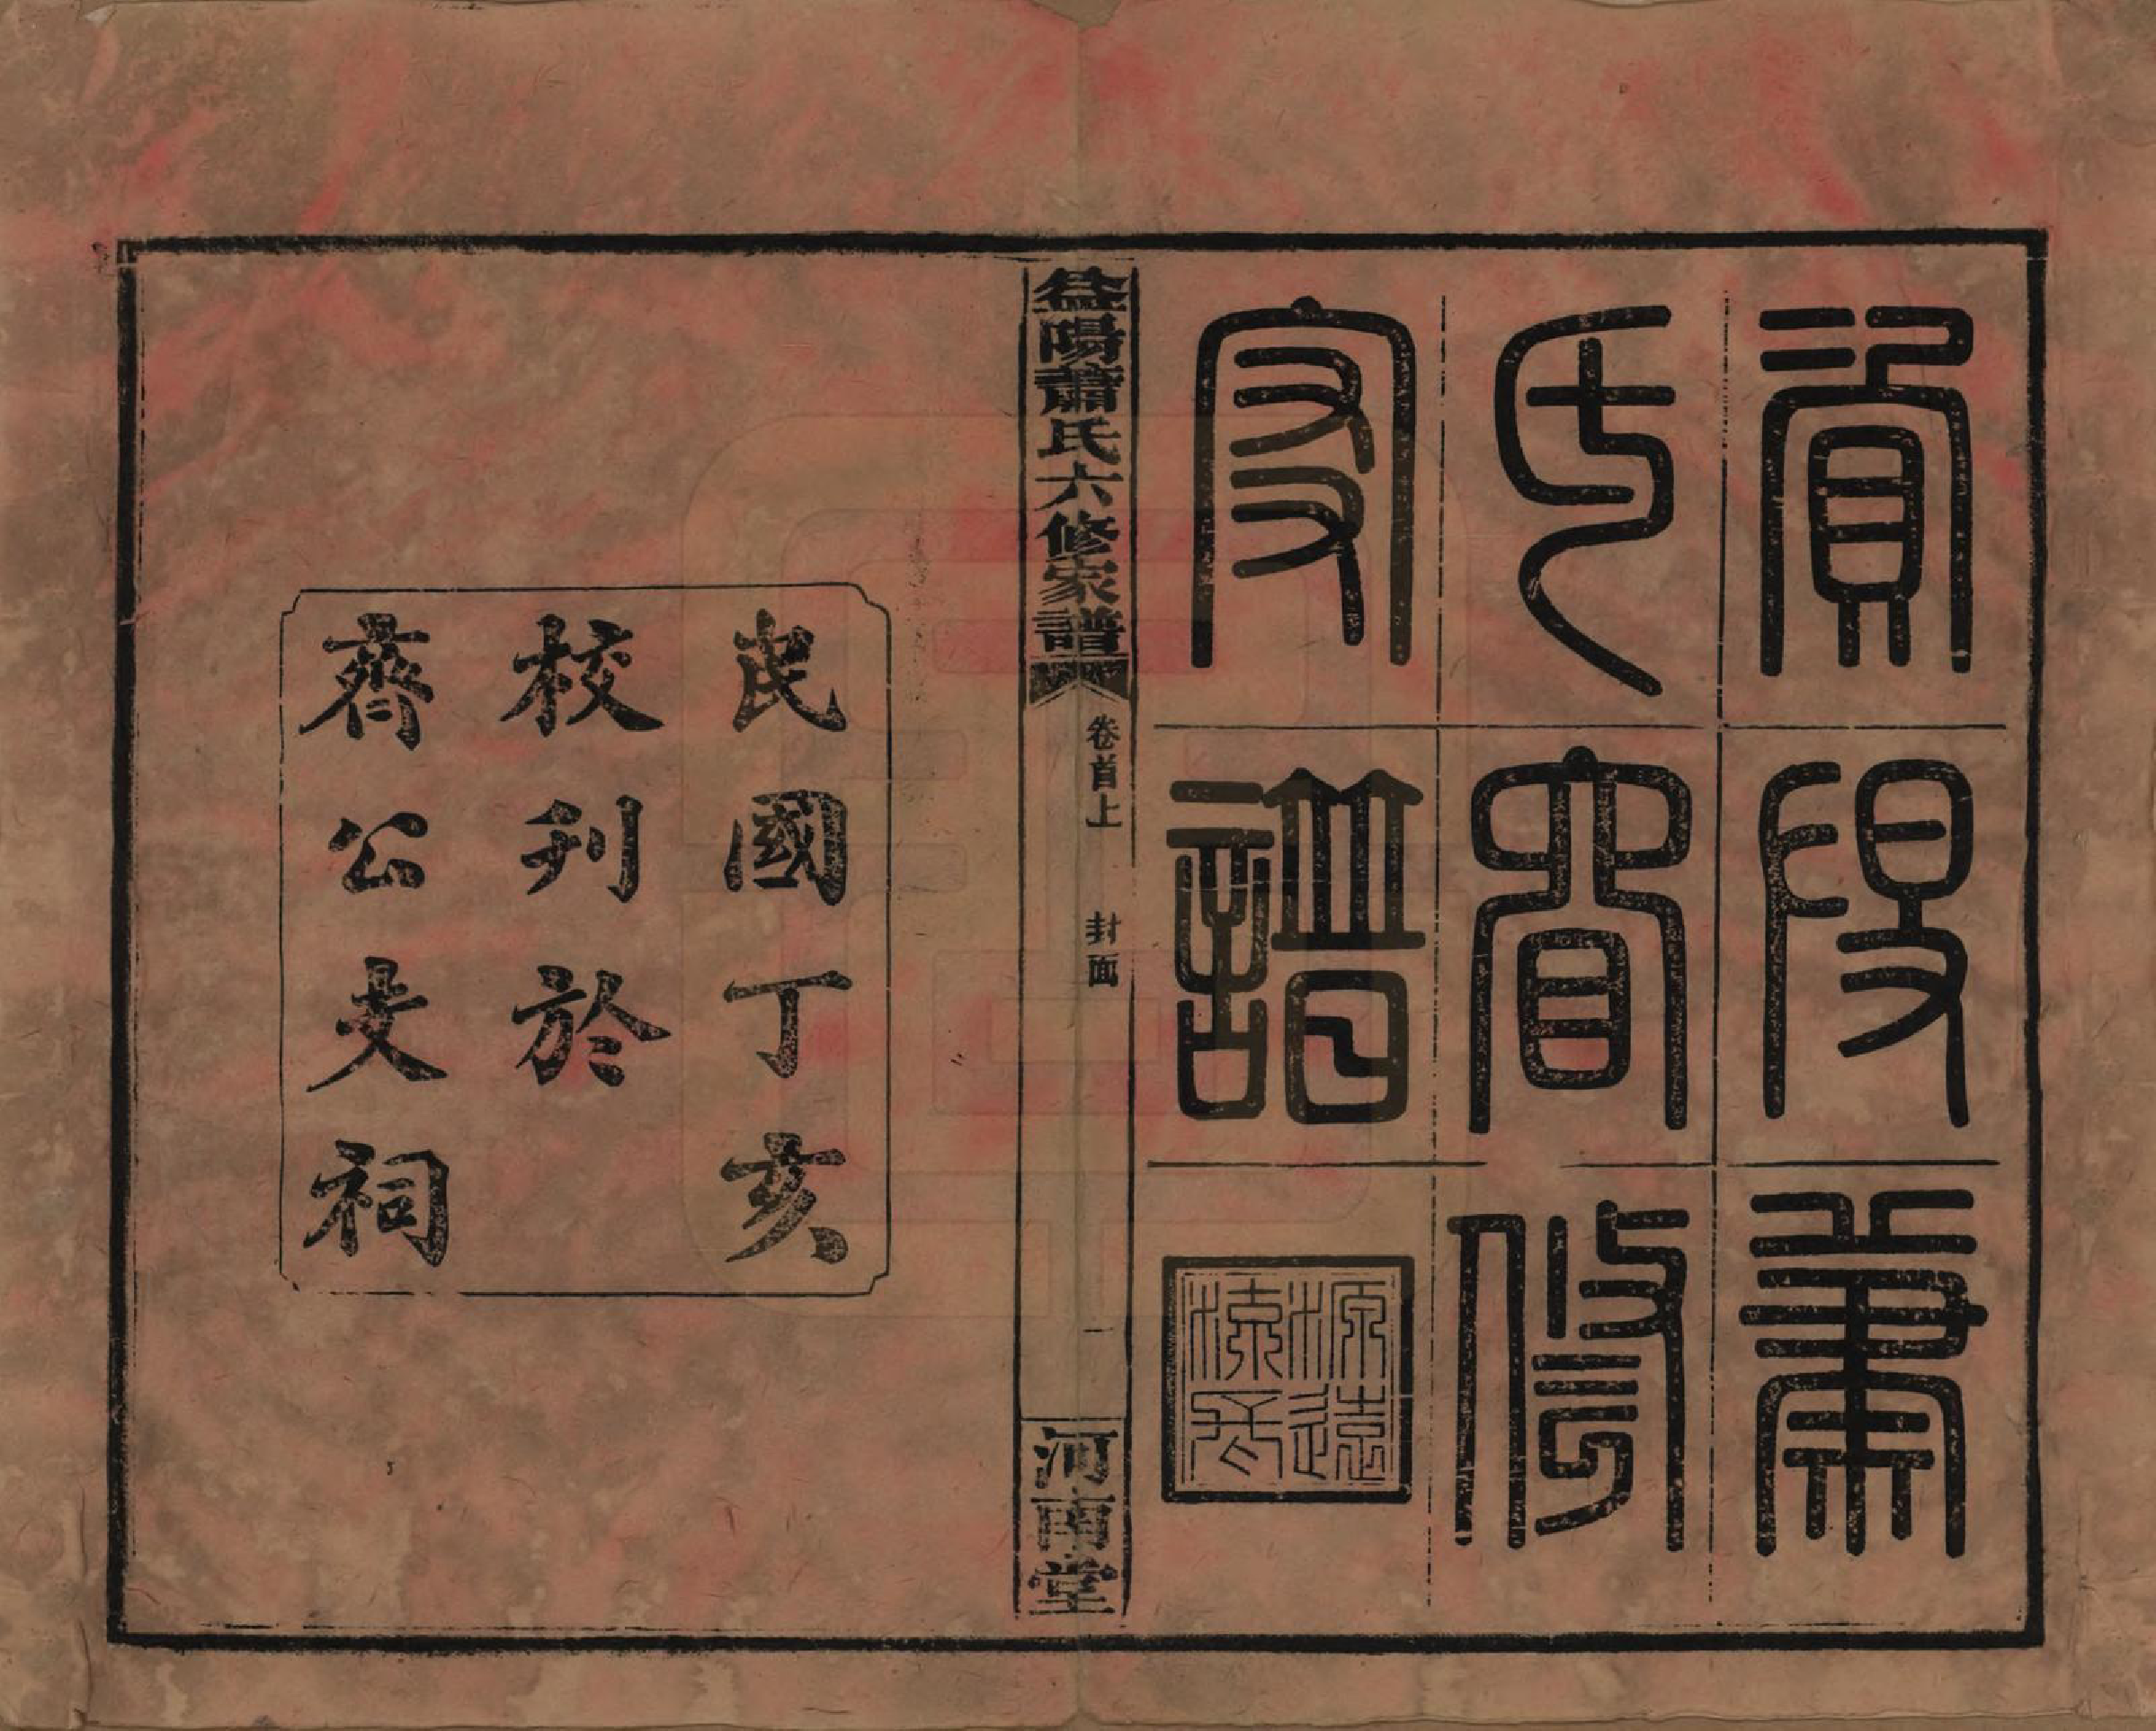 益陽蕭
氏六修
家譜
源遠
流長
益陽蕭氏六修家譜
卷首上
封面
一
河南堂
民國丁亥
校刊於
齊公支祠